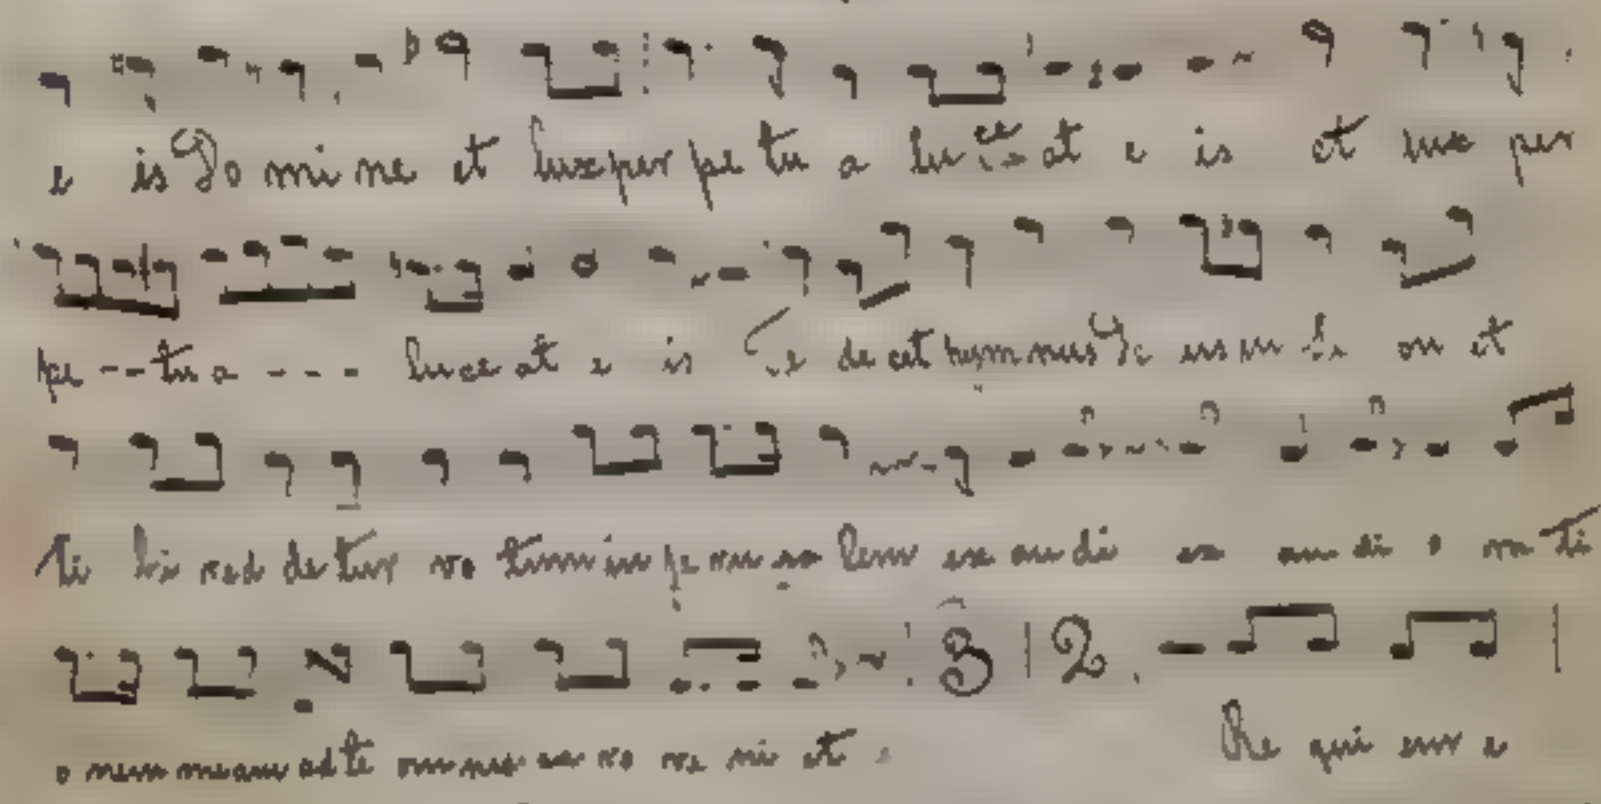 e is Do mi ne et lux per pe tu a lu ce at e is et lux per
pe -- tu a - - - luce at e is Te de cet hymnus De us in Si on et
ti bi red de tur vo tum in je ru sa lem ex au di ex au di o ra ti
3 | 2
o nem meam ad te omnis ca ro ve ni et Re qui em e